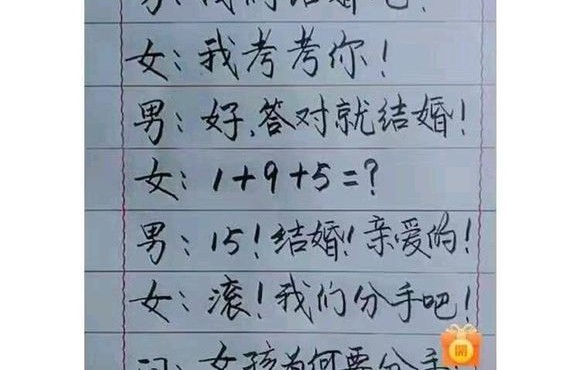 男：我们结婚吧！
女：我考考你！
男：好，答对就结婚！
女：1+9+5=？
男：15！结婚！亲爱的！
女：滚！我们分手吧！
问：女孩为何要分手
開